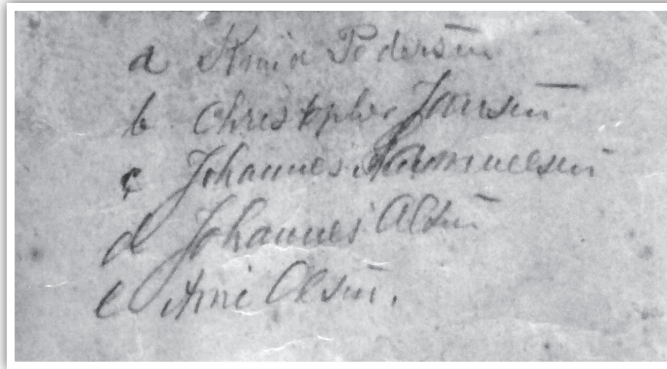 a Pedersen
b Christopher Jansen
c Johannes Samuelsen
d Johannes Olsen
e Arne Olsen.